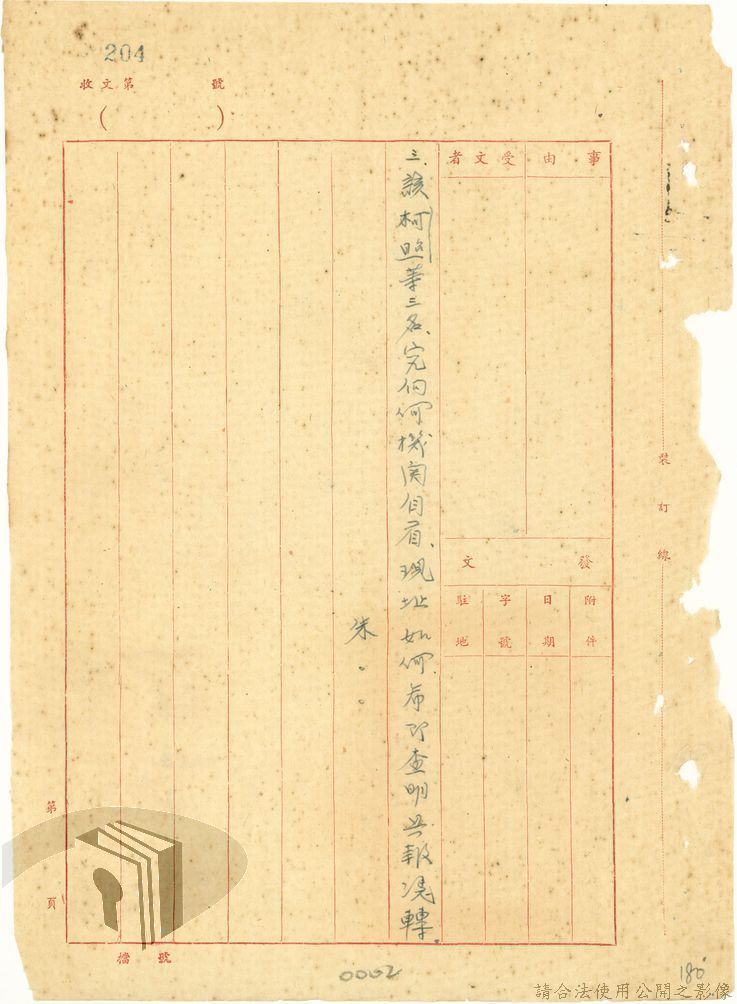 204
收文第　號
(　)
事由
受文者
發文
附件
日期
字號
駐地
三、該柯照華三名、究向何機關自首、現址如何、希即查明具報憑轉。
朱○○
裝訂線
第　頁
檔號
0002
180
請合法使用公開之影像